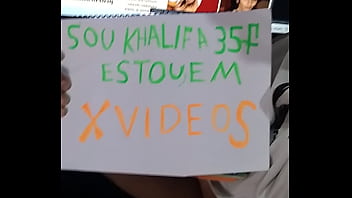 SOU KHALIFA 35F
ESTOUEM
XVIDEOS